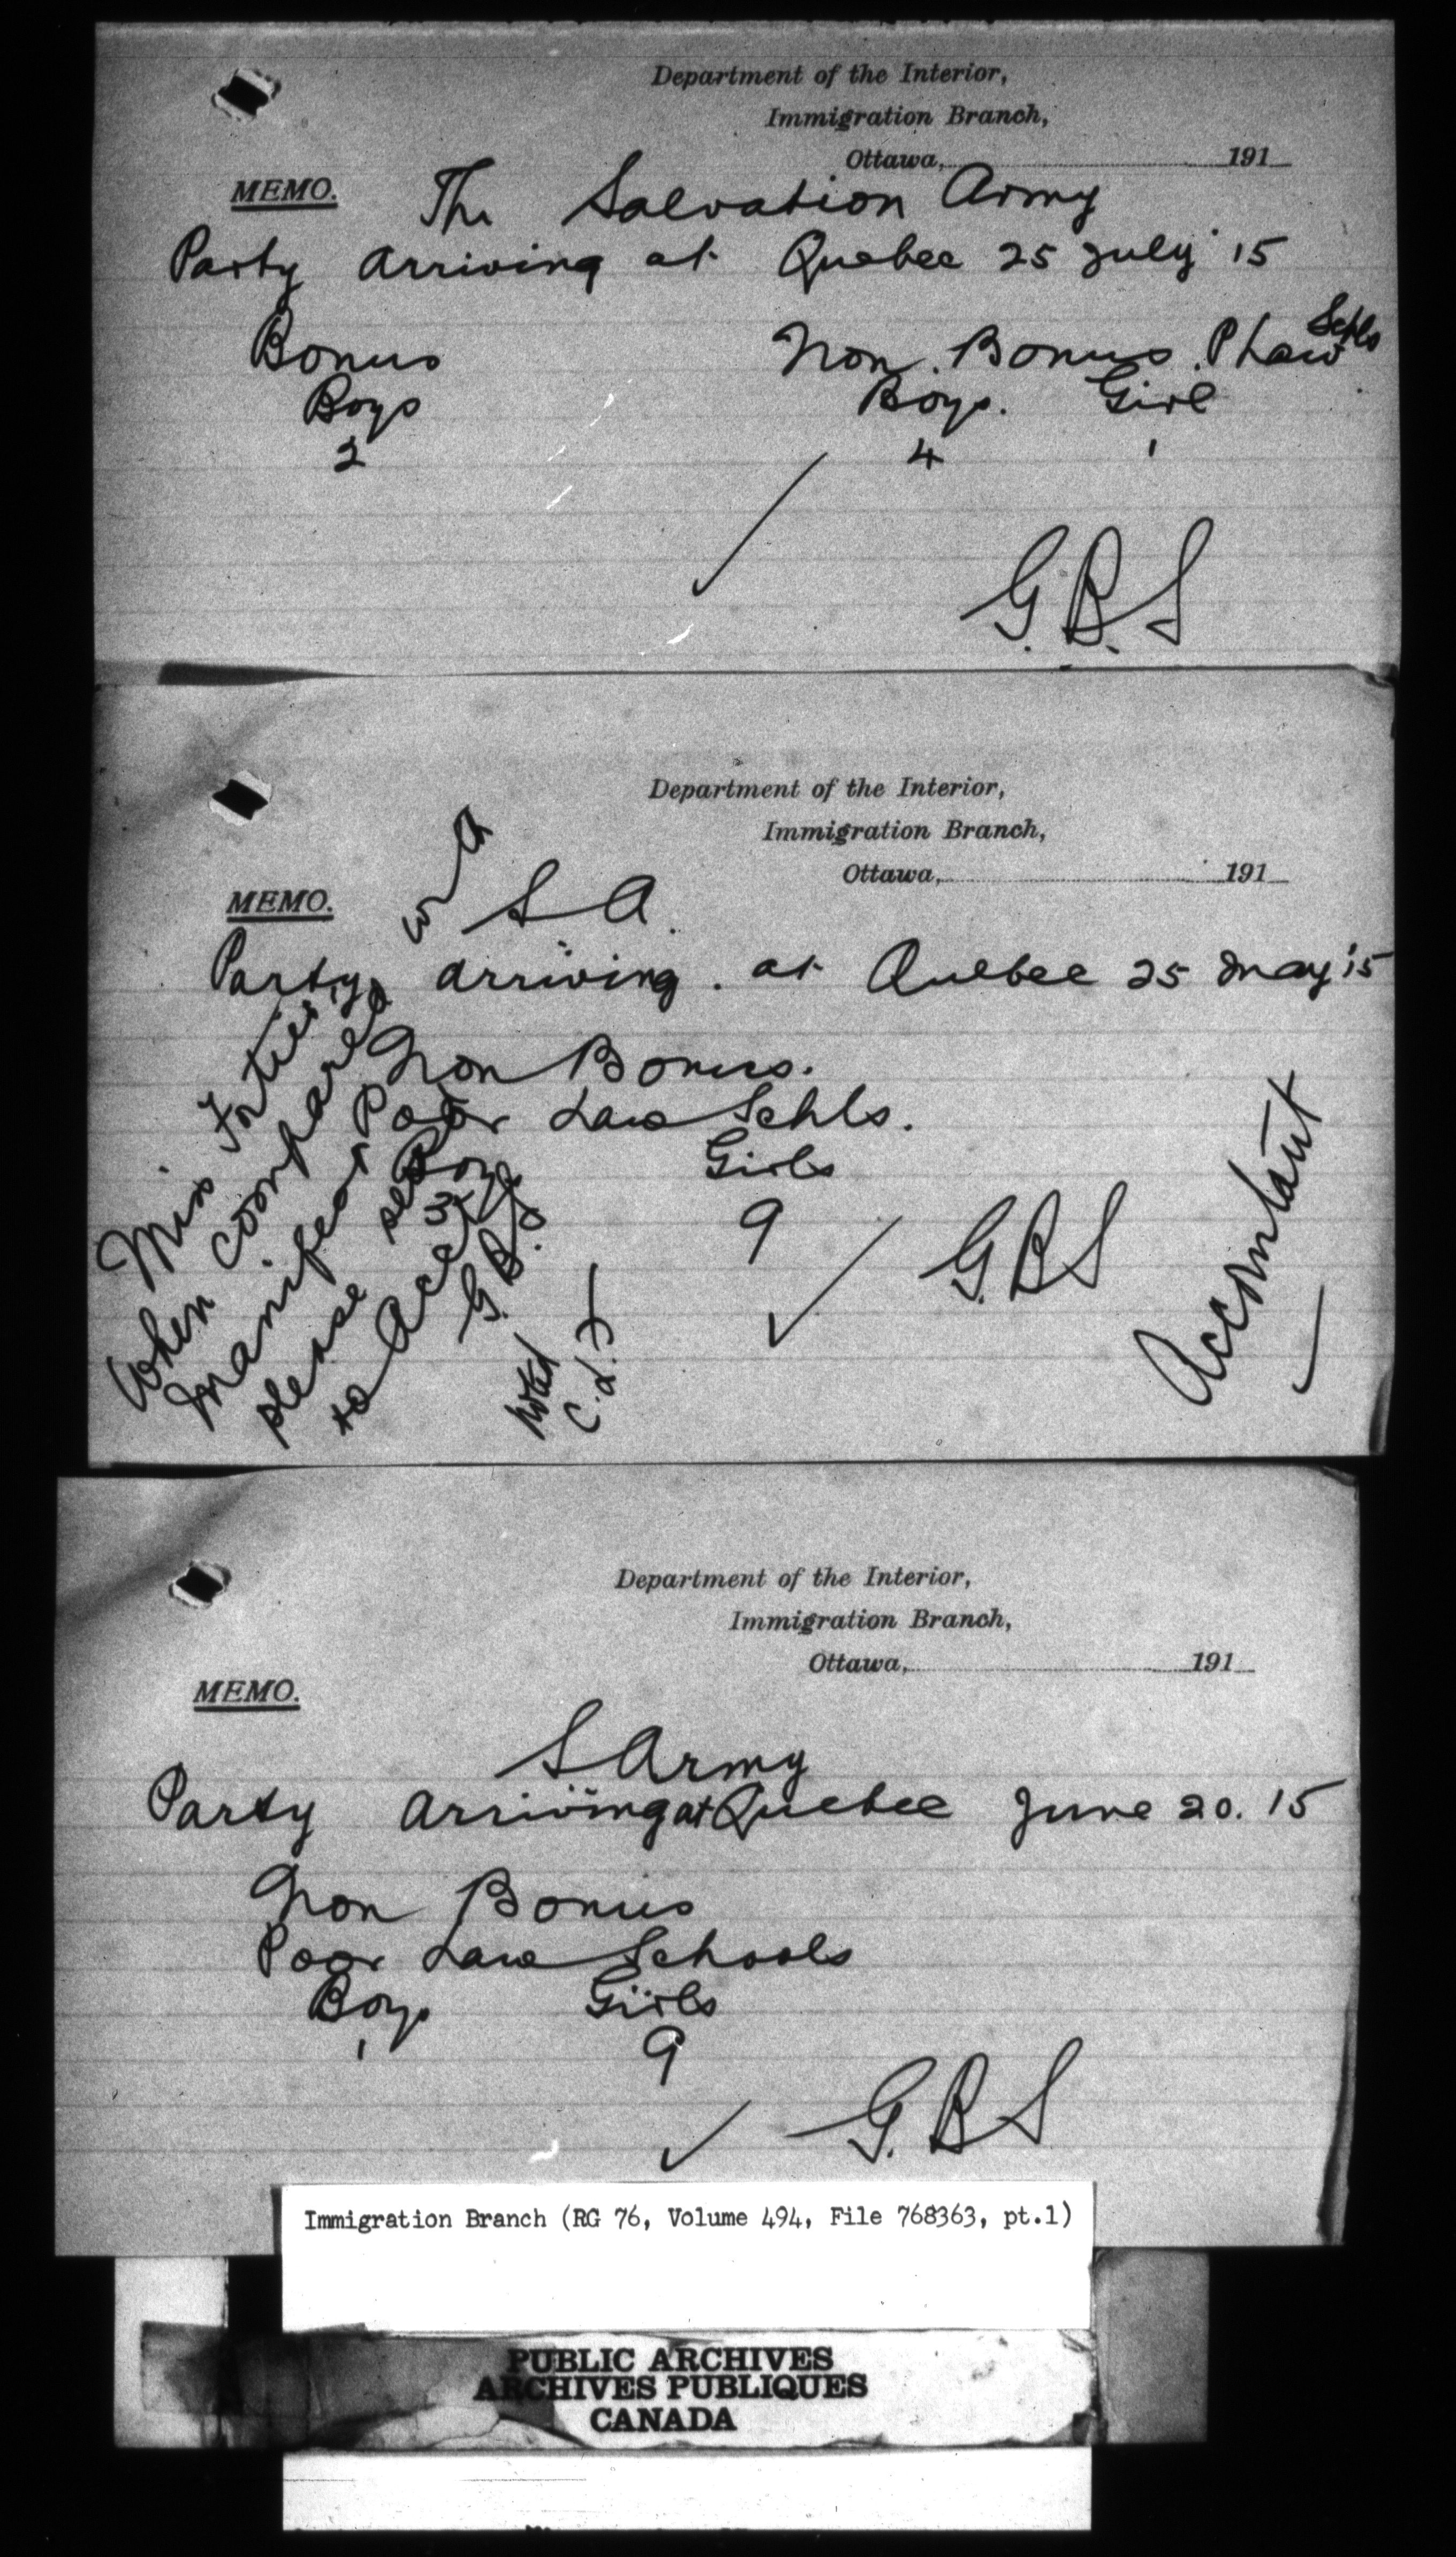 Department of the Interior,
Immigration Branch,
Ottawa, 191
MEMO.
The Salvation Army
Party arriving at Quebec 25 July 15
Bonus Non. Bonus. P Law Schls
Boys Boys. Girl
2 4 1
G.B.S
Department of the Interior,
Immigration Branch,
Ottawa, 191
MEMO.
S A.
Party arriving. at Quebec 25 May '15
Non Bonus.
Poor Law Schls.
Boys Girls
3 9
G.B.S
Accountant
Miss
When compared with
manifest
please send
to Acct
G.B.S
Noted
Department of the Interior,
Immigration Branch,
Ottawa, 191
MEMO.
S Army
Party arriving at Quebec June 20. 15
Non Bonus
Poor Law Schools
Boys Girls
1 9
G.B.S
Immigration Branch (RG 76, Volume 494, File 768363, pt.1)
PUBLIC ARCHIVES
ARCHIVES PUBLIQUES
CANADA